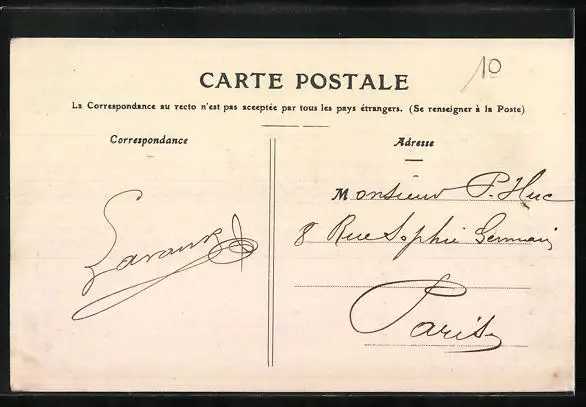 10
CARTE POSTALE
La Correspondance au recto n'est pas acceptée par tous les pays étrangers. (Se renseigner à la Poste)
Correspondance
Adresse
Monsieur P. Huc
8 Rue Sophie Germain
Paris